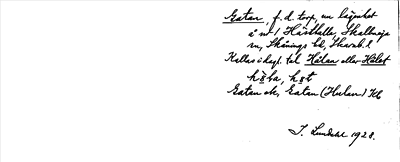 Gatan, f. d. torp, nu lägenhet
å nr 1 Härshalla, Skallmeja
sn, Skånings hd, Skarab. l
Kallas i dagl. tal Hålan eller Hålet
Gatan ek, Gatan (Hulan) Kb
J. Lundahl 1928.